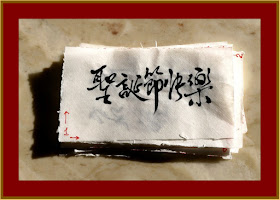 聖誕節快樂